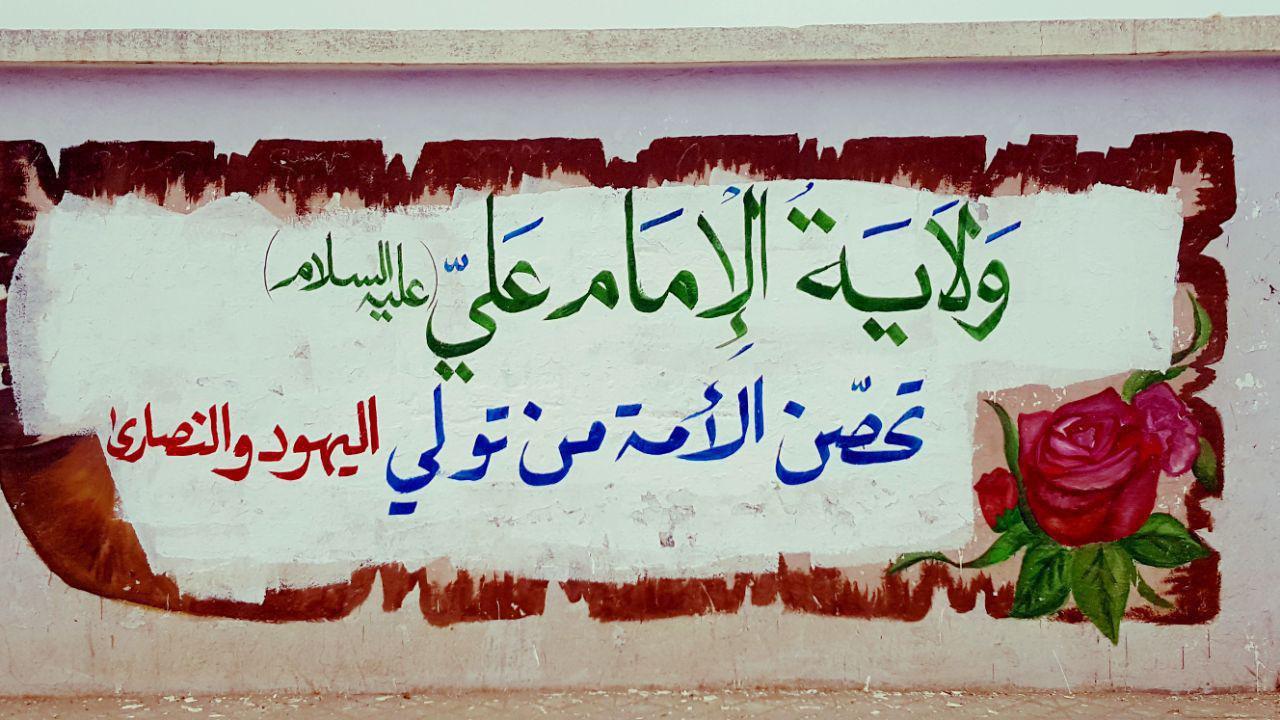 وَلَايَةُ الْإِمَامَ عَليّ (عليه السلام)
تحصّن الَأمة من تولي اليهود والنصارى